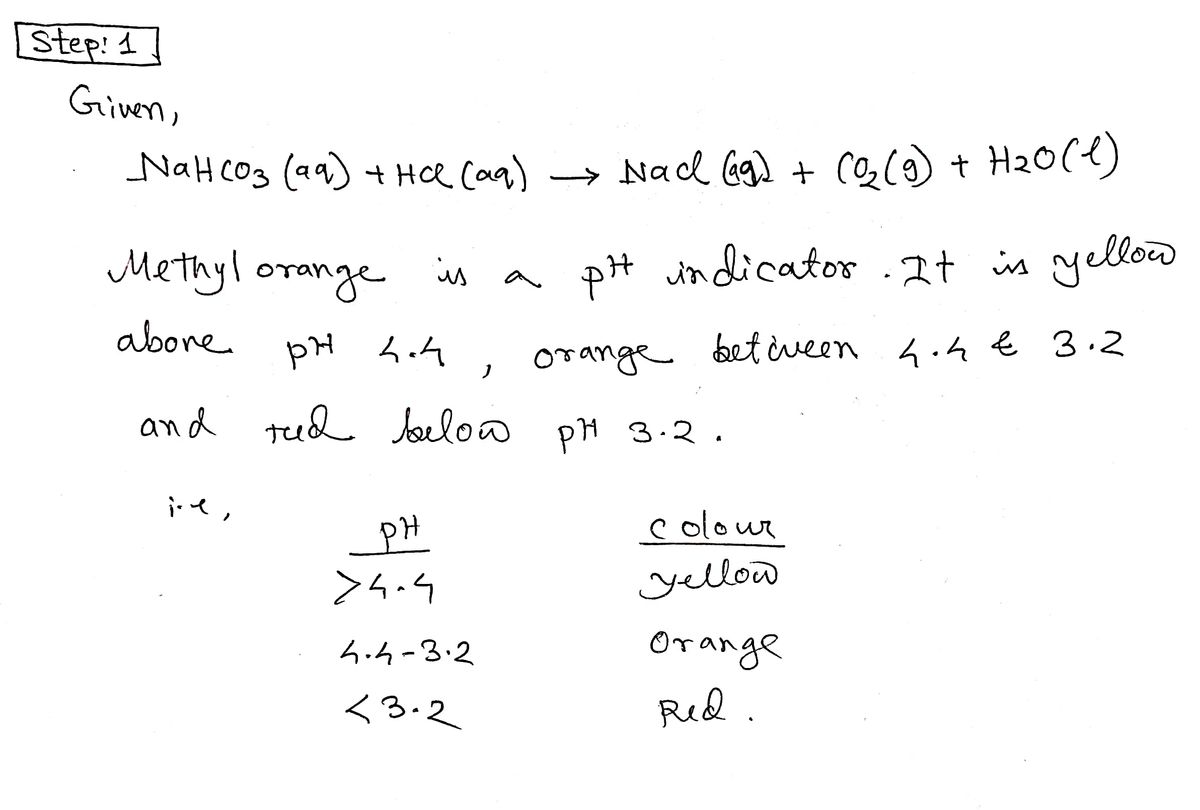 Step: 1
Given,
NaHCO3 (aq) + HCl (aq) → NaCl (aq) + CO2(g) + H2O(l)
Methyl orange is a pH indicator. It is yellow
above pH 4.4, orange between 4.4 & 3.2
and red below pH 3.2.
i.e,
pH colour
>4.4 yellow
4.4-3.2 Orange
<3.2 Red.